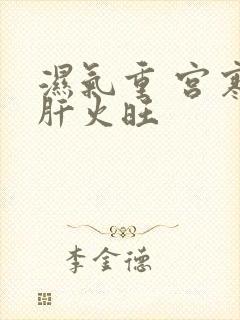 濕氣重 宮寒
肝火旺
李金德